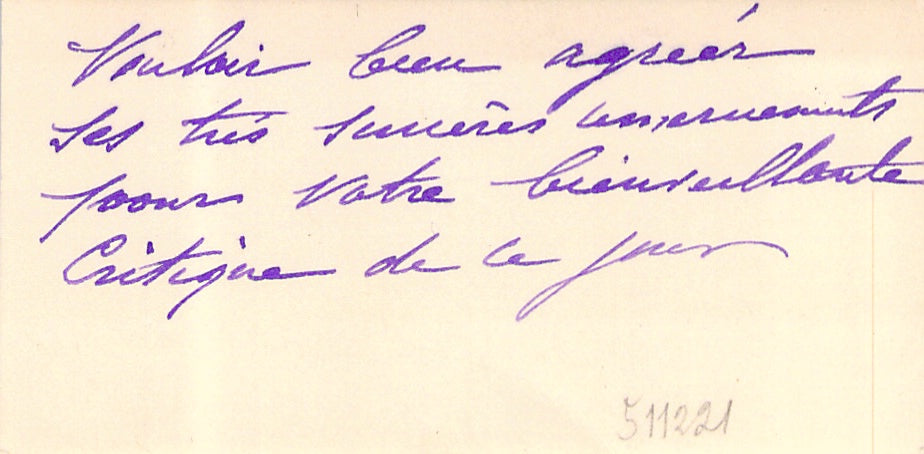 Vouloir bien agréer
ses très sincères remerciements
pour votre bienveillante
Critique de ce jour
511221